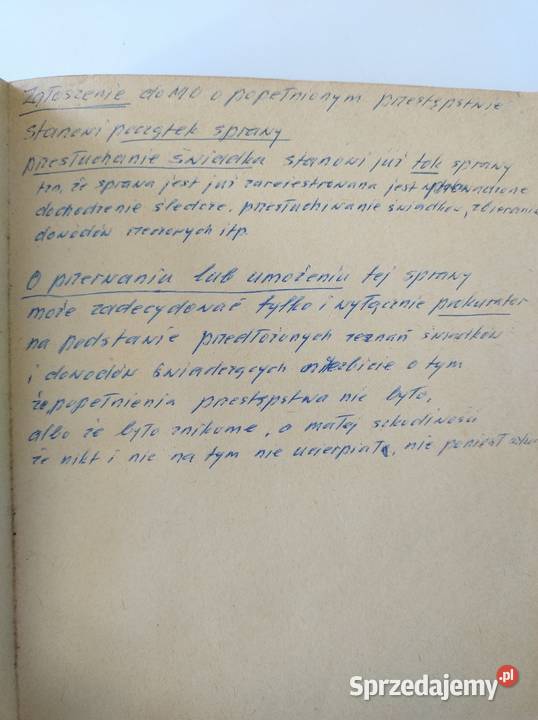 Zgłoszenie do MO o popełnionym przestępstwie
stanowi początek sprawy
przesłuchanie świadka stanowi już tok sprawy
tzn, że sprawa jest już zarejestrowana jest wprowadzone
dochodzenie śledcze, przesłuchiwanie świadków, zbieranie
dowodów rzeczowych itp.
O przerwaniu lub umożeniu tej sprawy
może zadecydować tylko i wyłącznie prokurator
na podstawie przedłożonych zeznań świadków
i dowodów świadczących niezbicie o tym
że popełnienia przestępstwa nie było,
albo że było znikome, o małej szkodliwości
że nikt i nic na tym nie ucierpiał, nie poniósł
Sprzedajemy.pl